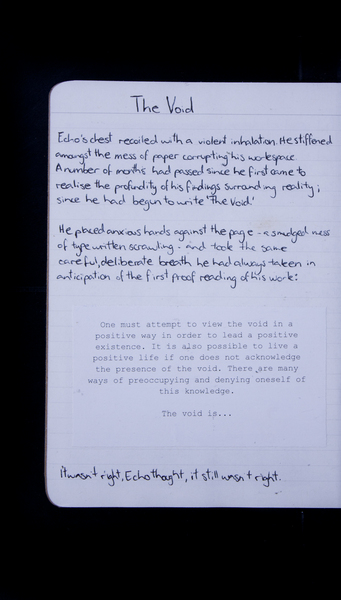 The Void
Echo's chest recoiled with a violent inhalation. He stiffened
amongst the mess of paper corrupting his workspace.
A number of months had passed since he first came to
realise the profundity of his findings surrounding reality;
since he had begun to write 'The Void.'
He placed anxious hands against the page - a smudged mess
of type written scrawling - and took the same
careful, deliberate breath he had always taken in
anticipation of the first proof reading of his work:
One must attempt to view the void in a
positive way in order to lead a positive
existence. It is also possible to live a
positive life if one does not acknowledge
the presence of the void. There are many
ways of preoccupying and denying oneself of
this knowledge.
The void is...
It wasn't right, Echo thought, it still wasn't right.